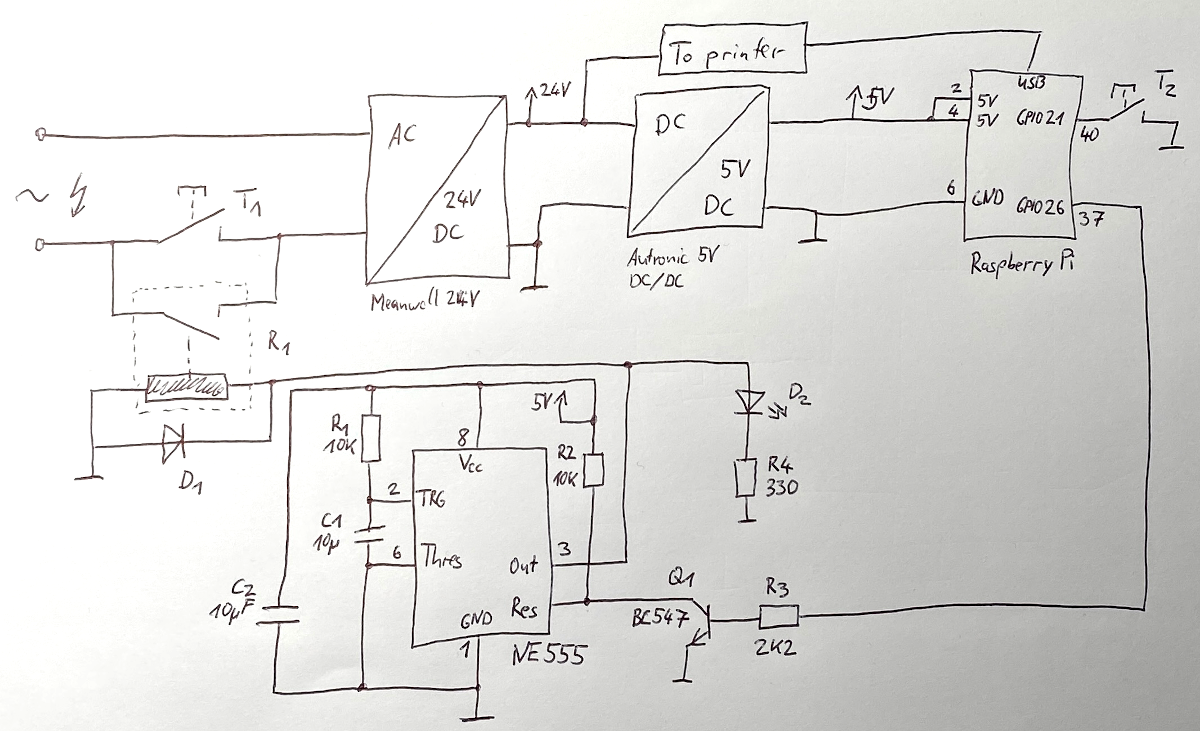 To printer
24V
5V
USB
T2
2
5V
4
5V
GPIO21
40
AC
DC
~
T1
24V
DC
5V
DC
6
GND
GPIO26
37
Meanwell 24V
Autronic 5V
DC/DC
Raspberry Pi
R1
D1
R1
10K
8
Vcc
5V
R2
10K
D2
R4
330
2
TRG
C1
10µ
6
Thres
Out
3
C2
10µF
GND
1
Res
NE555
Q1
BC547
R3
2K2